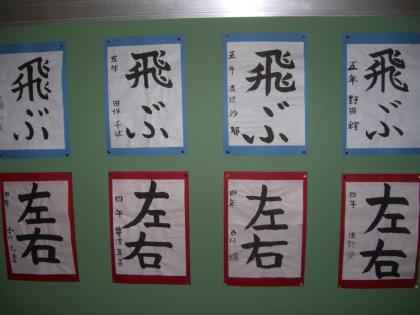 飛ぶ
飛ぶ
五年
飛ぶ
五年 渡辺沙耶
飛ぶ
五年 野田輝
左右
四年
左右
四年
左右
四年
左右
四年